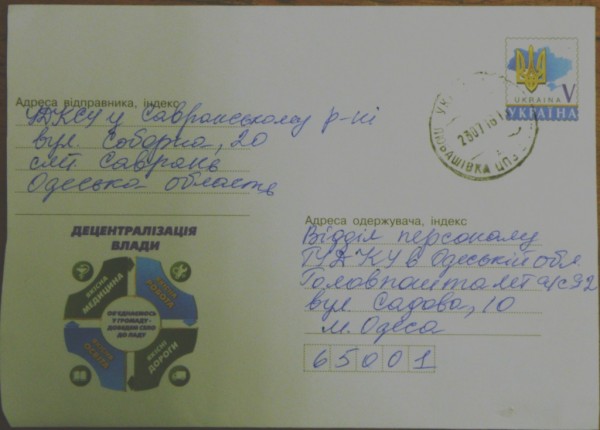 Адреса відправника, індекс
УДКСУ у Савранському р-ні
вул. Соборна, 20
смт Саврань
Одеська область
UKRAINA V
УКРАЇНА
230716
ЛЮБАШІВКА ЦПЗ
ДЕЦЕНТРАЛІЗАЦІЯ
ВЛАДИ
ЯКІСНА
МЕДИЦИНА
РОБОТА
ОБ'ЄДНАЄМОСЬ
У ГРОМАДУ -
ДОВЕДЕМО СЕЛО
ДО ЛАДУ
ЯКІСНА
ОСВІТА
ЯКІСНІ
ДОРОГИ
Адреса одержувача, індекс
Відділ персоналу
ГУДКУ в Одеській обл
Головпоштамт а/с 92
вул. Садова, 10
м. Одеса
65001